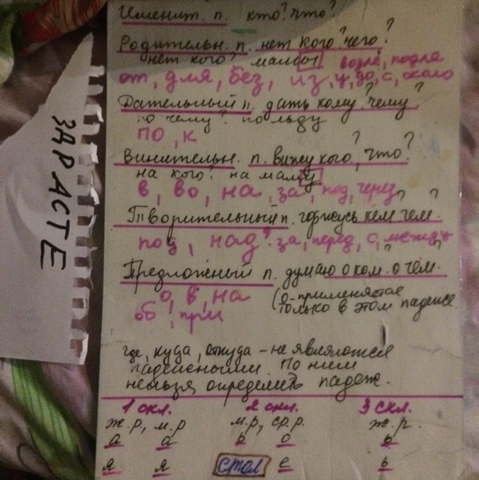 Именит п. кто? что?
Родительн. п. нет кого? чего?
нет кого? мамы возле, подле
от, для, без, из, у, до, с, около
Дательный п. дать кому? чему?
по чему? по льду
по, к
Винительн. п. вижу кого, что?
на кого? на маму
в, во, на, за, под, через
Творительный п. горжусь кем? чем?
под, над, за, перед, с, между
Предложный п. думаю о ком. о чём.
о, в, на (о-применяется
об, при только в этом падеже
где, куда, откуда - не являются
падежными. По ним
нельзя определить падеж.
1 скл. 2 скл. 3 скл.
ж.р, м.р м.р, ср.р. ж.р.
а а о ь
я я стол е ь
ЗДРАСТЕ